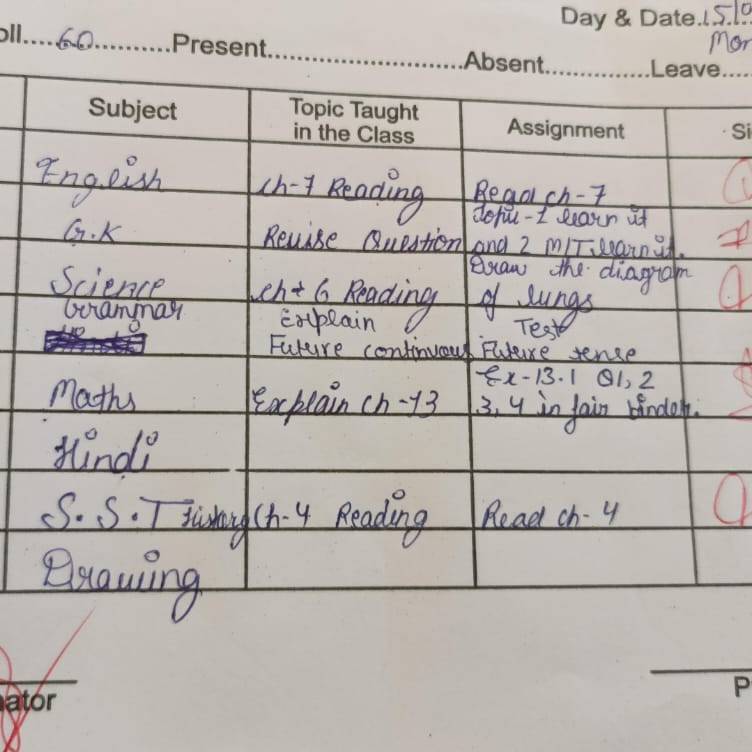 Day & Date.15.10
Mon
oll....60...........Present........................Absent..............Leave.....
Subject Topic Taught in the Class Assignment Si
English Ch-7 Reading Read ch-7
G.K Revise Question Topic-1 learn it and 2 M/T learn it.
Science Ch-6 Reading Draw the diagram of lungs
Grammar Explain Future continuous Test Future tense
Maths Explain Ch-13 Ex-13.1 Q1,2 3,4 in fair binder.
Hindi
S.S.T History Ch-4 Reading Read ch-4
Drawing
ator P